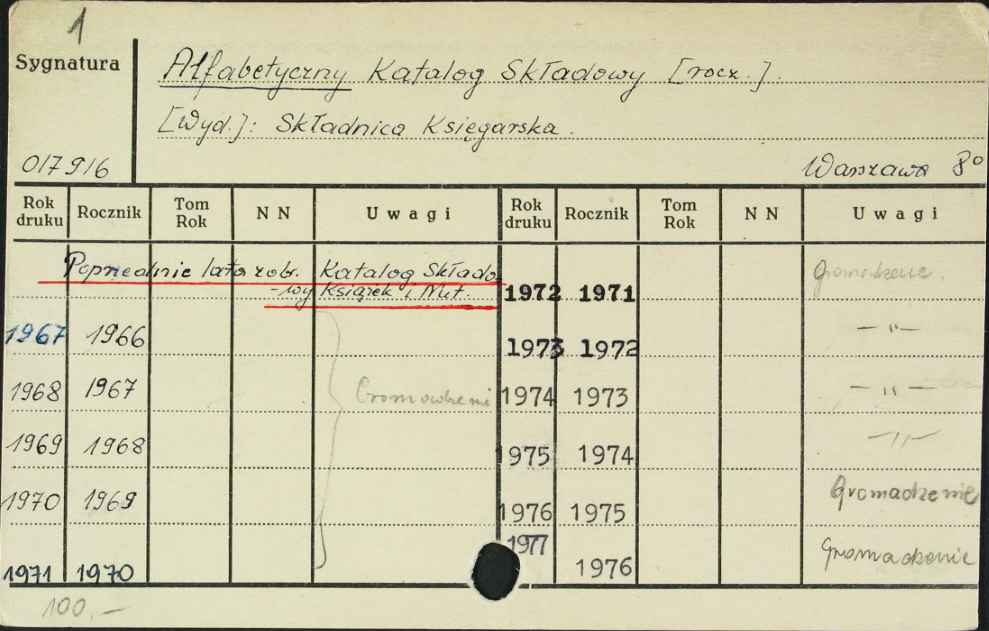 1
Sygnatura
Alfabetyczny Katalog Składowy [rocz.].
[Wyd.]: Składnica Księgarska.
017916
Warszawa 8°
Rok druku Rocznik Tom Rok N N Uwagi Rok druku Rocznik Tom Rok N N Uwagi
Poprzednie lata zob. Katalog Składo
-wy Książek i Nut.
1972 1971 Gromadzenie.
1967 1966 1973 1972 —"—
1968 1967 Gromadzenie 1974 1973 —"—
1969 1968 1975 1974 —"—
1970 1969 1976 1975 Gromadzenie
1971 1970 1977 1976 Gromadzenie
100,-